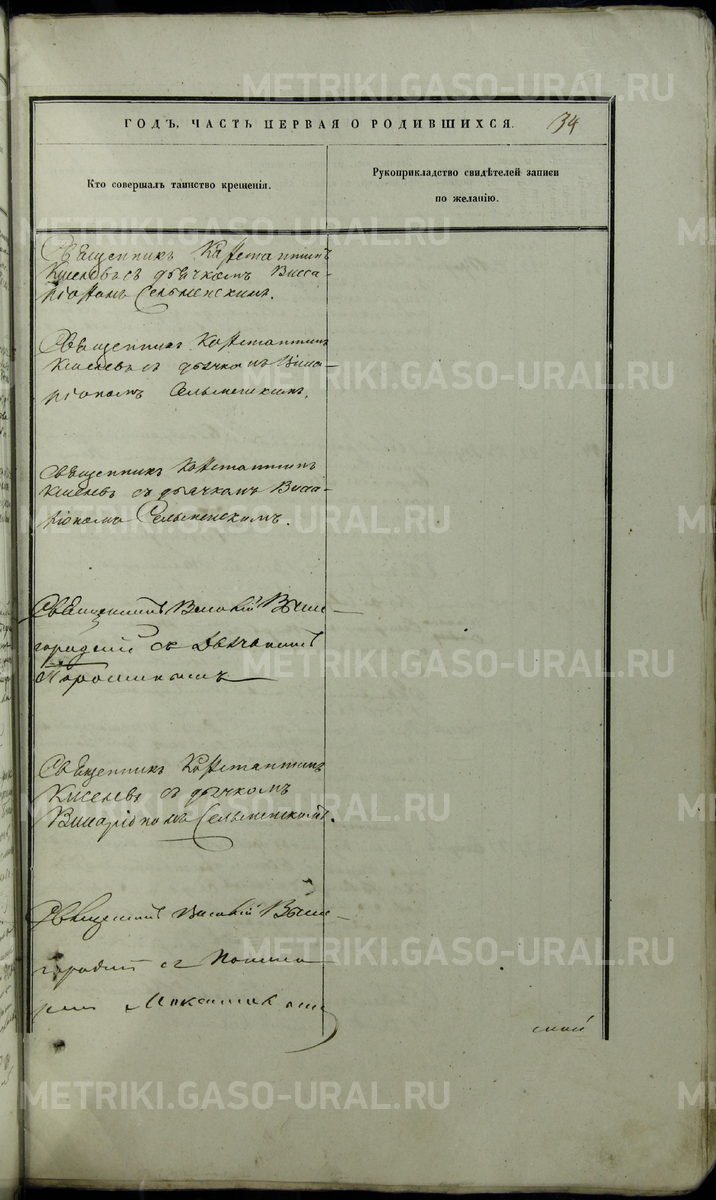 METRIKI.GASO-URAL.RU
ГОДЪ. ЧАСТЬ ПЕРВАЯ О РОДИВШИХСЯ. 34
Кто совершалъ таинство крещенія.
Рукоприкладство свидѣтелей записи
по желанію.
Священникъ Константинъ
Киселевъ съ дьячкомъ Висса-
ріономъ Сельменскимъ.
Священникъ Константинъ
Киселевъ съ дьячкомъ Висса-
ріономъ Сельменскимъ.
Священникъ Константинъ
Киселевъ съ дьячкомъ Висса-
ріономъ Сельменскимъ.
Священникъ Василій Выше-
городскій съ Дьячкомъ
Священникъ Константинъ
Киселевъ съ дьячкомъ
Виссаріономъ Сельменскимъ.
Священникъ Василій Выше-
съ